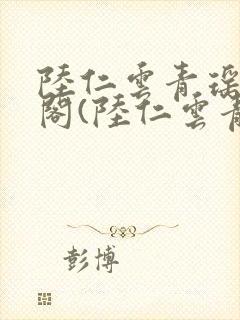 陸仁雲青瑤
閣(陸仁雲青
彭博